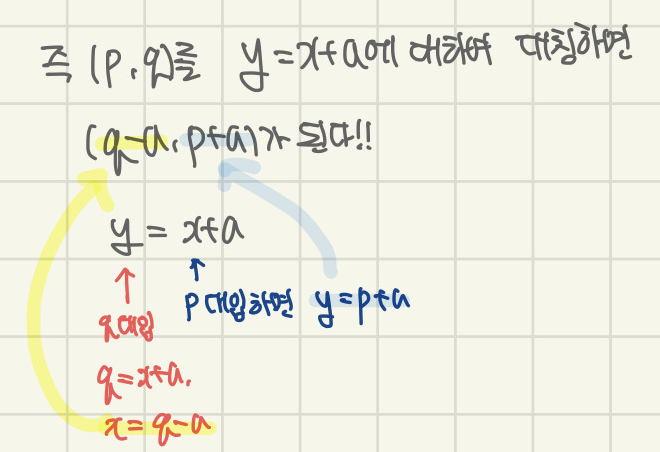 즉 (p, q)를 y=x+a에 대하여 대칭하면
(q-a, p+a)가 된다!!
y = x+a
↑ ↑
q대입 p 대입하면 y=p+a
q=x+a.
x=q-a